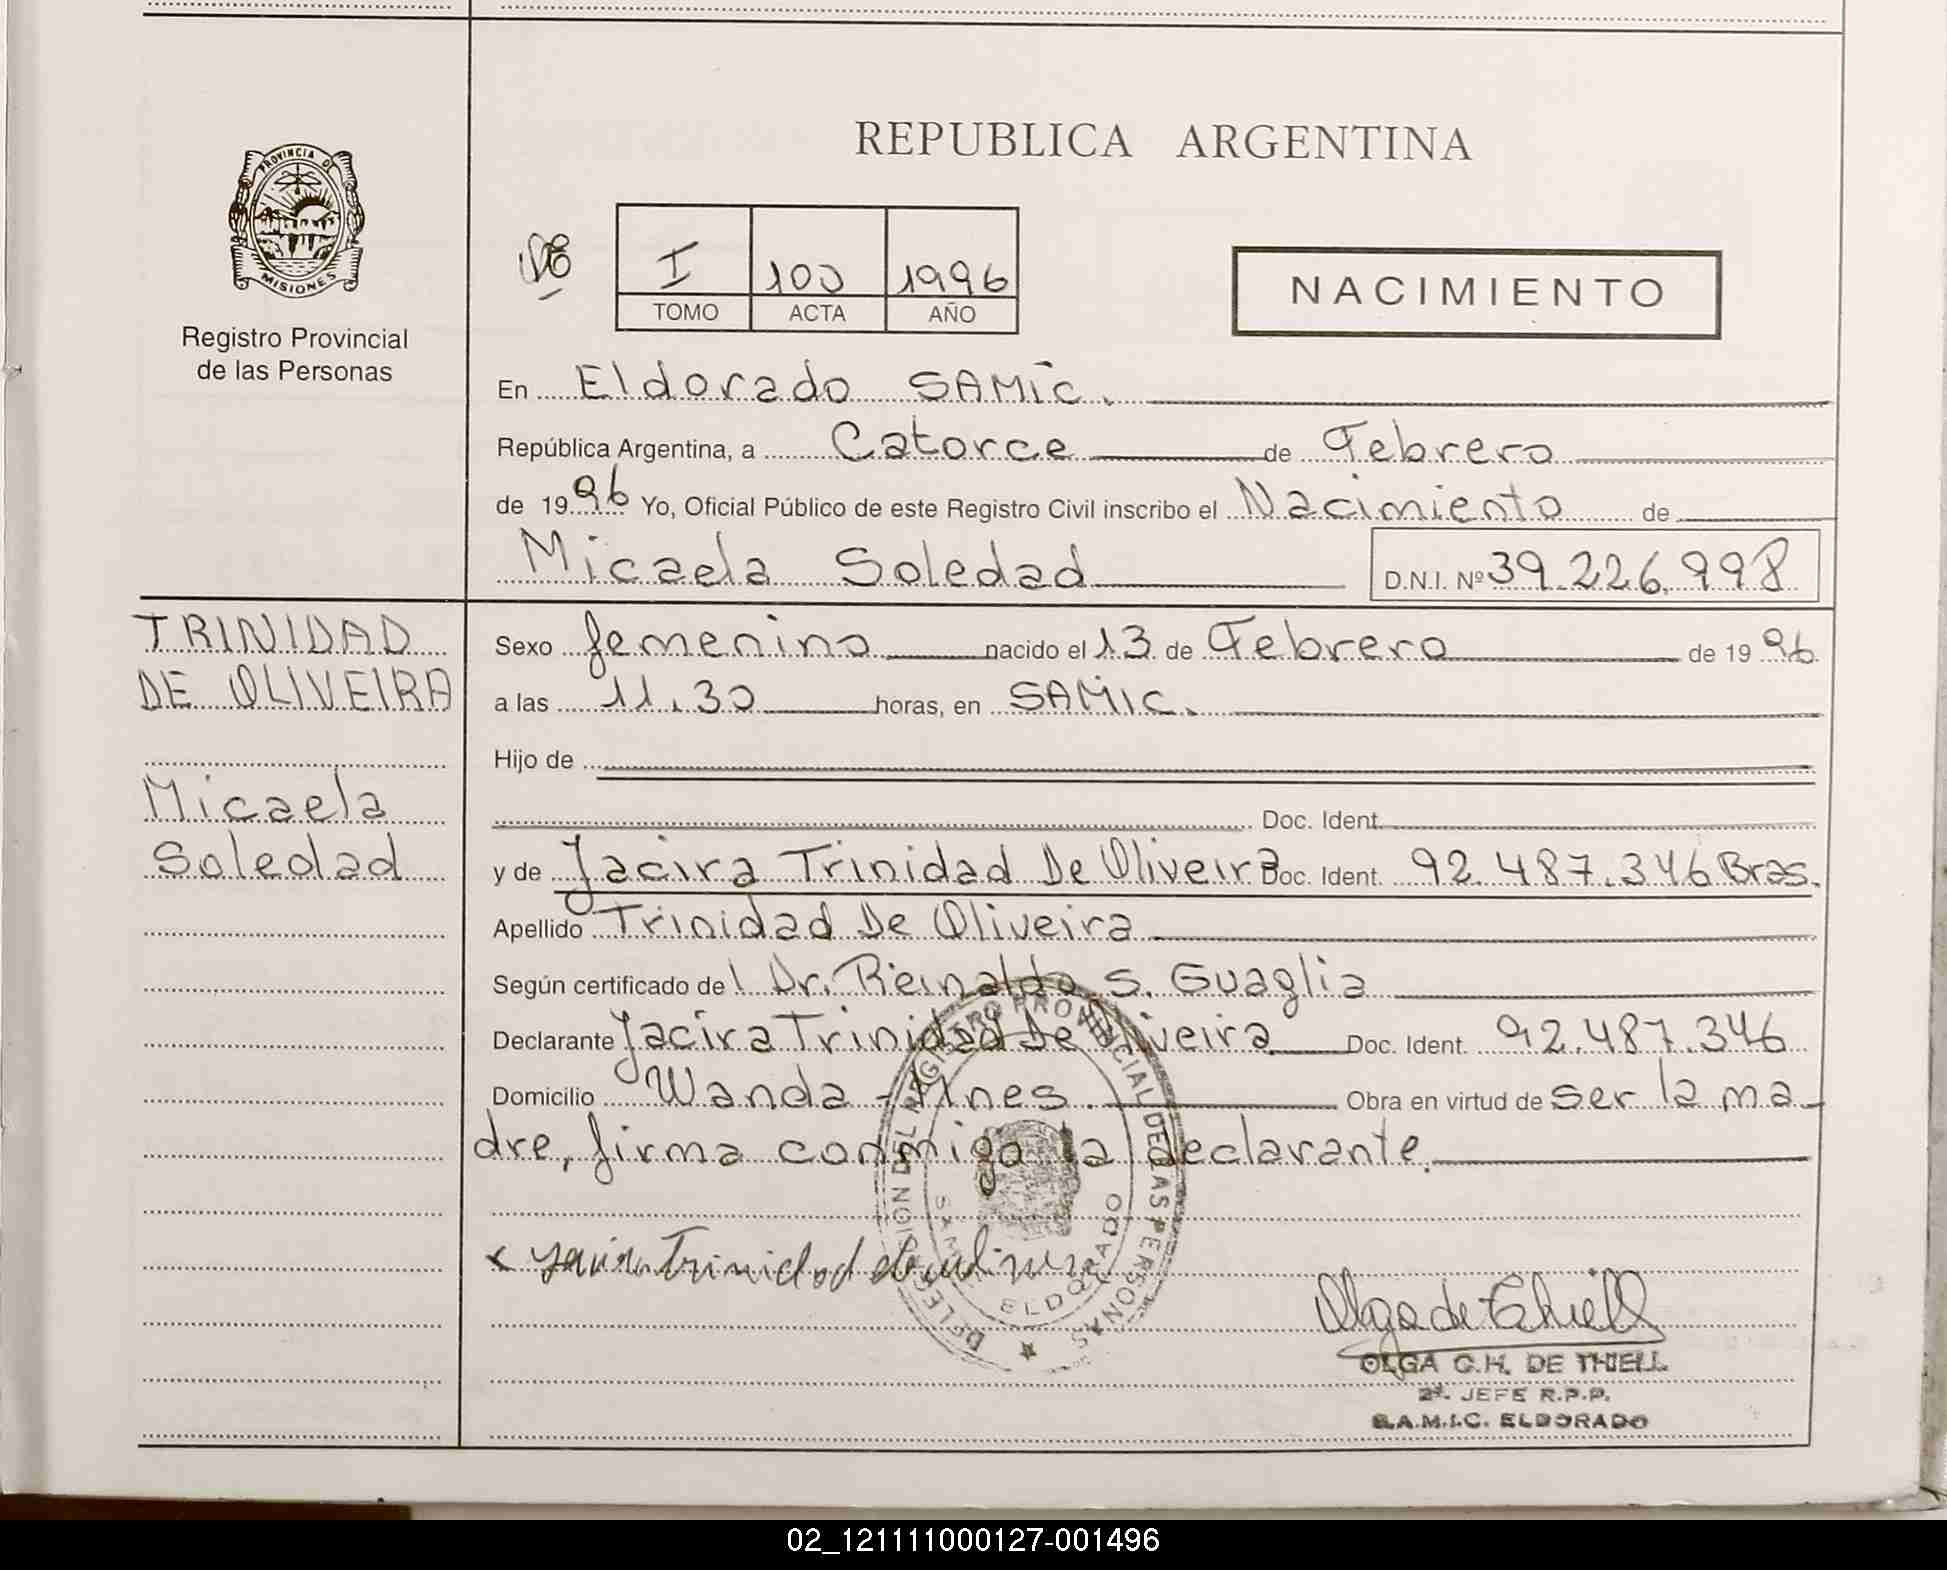 REPUBLICA ARGENTINA
PROVINCIA DE
MISIONES
Registro Provincial
de las Personas
I 100 1996
TOMO ACTA AÑO
NACIMIENTO
En Eldorado SAMIC.
República Argentina, a Catorce de Febrero
de 1996 Yo, Oficial Público de este Registro Civil inscribo el Nacimiento de
Micaela Soledad D.N.I. Nº 39.226.998
TRINIDAD
DE OLIVEIRA
Micaela
Soledad
Sexo femenino nacido el 13 de Febrero de 1996
a las 11.30 horas, en SAMIC.
Hijo de
Doc. Ident.
y de Jacira Trinidad De Oliveira Doc. Ident. 92.487.346 Bras.
Apellido Trinidad De Oliveira
Según certificado del Dr. Reinaldo S. Guaglia
Declarante Jacira Trinidad De Oliveira Doc. Ident. 92.487.346
Domicilio Wanda - Mnes. Obra en virtud de ser la ma
dre, firma conmigo la declarante.
DELEGACION DEL REGISTRO PROVINCIAL DE LAS PERSONAS
ELDORADO
Olga de Thiell
OLGA C.H. DE THIELL
2ª. JEFE R.P.P.
S.A.M.I.C. ELDORADO
02_121111000127-001496